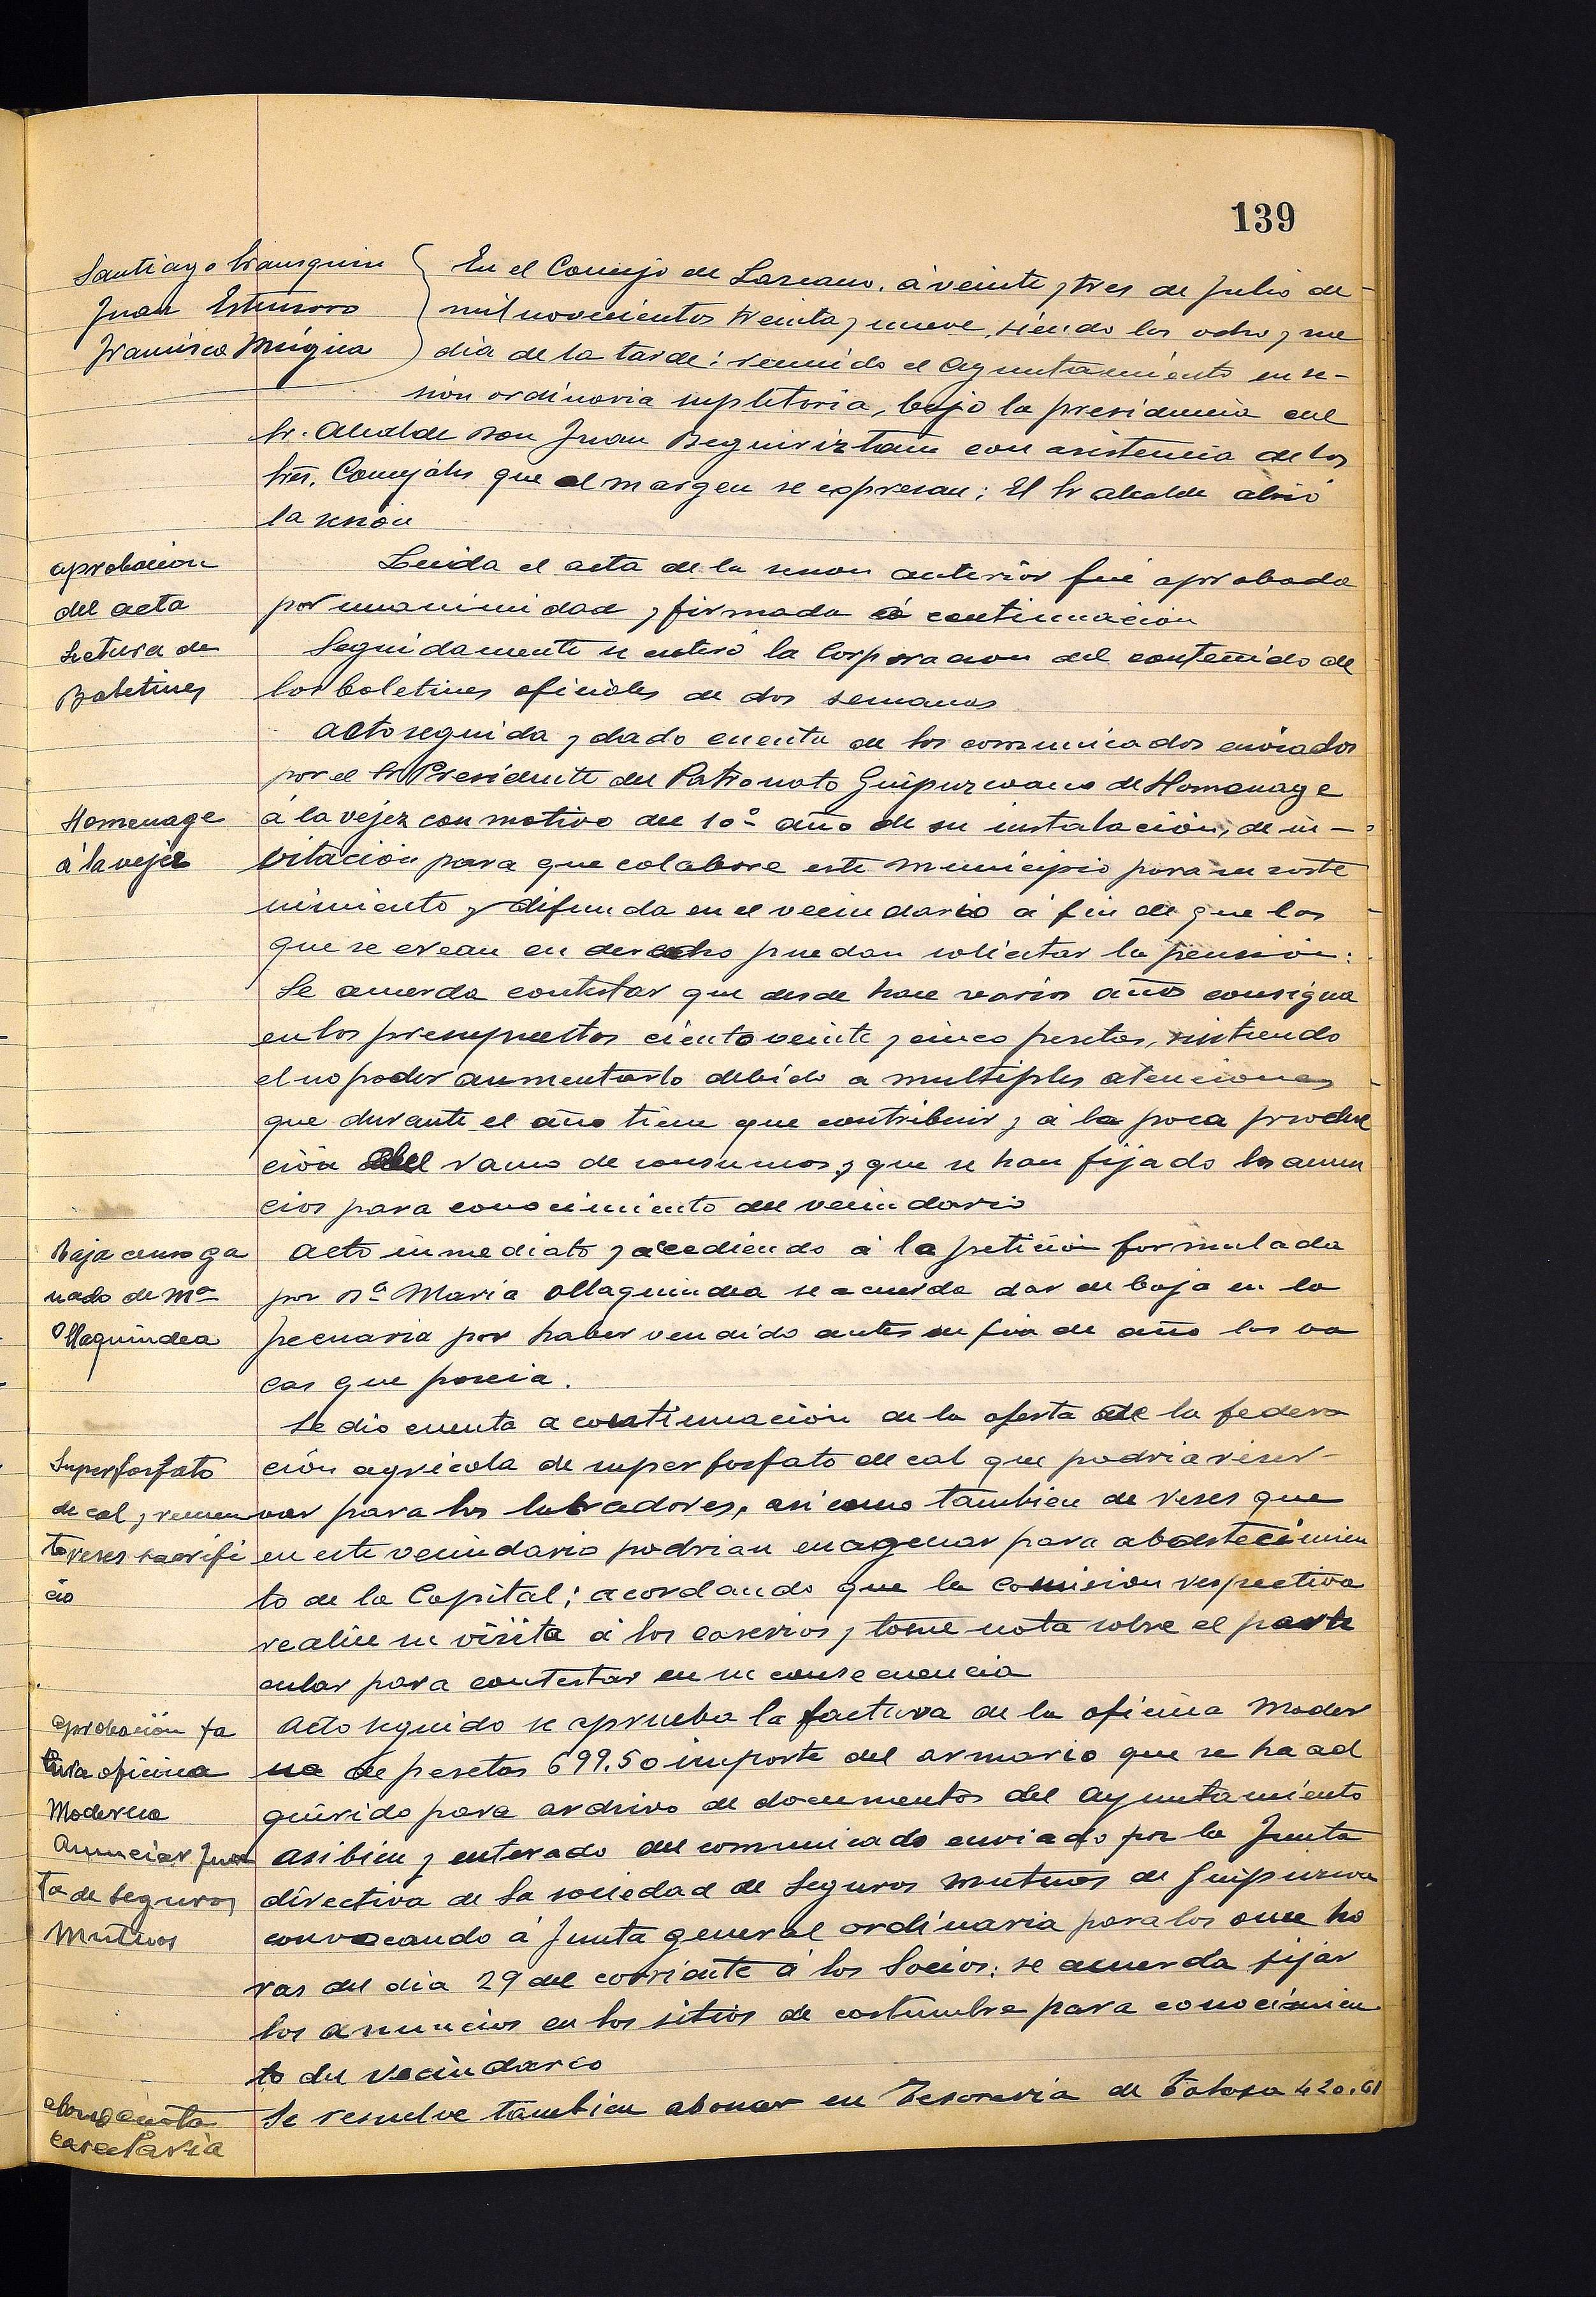 139
Santiago Iranquin
Juan Estensoro
Francisco Múgica
En el Concejo de Lazcano, á veinte y tres de Julio de
mil novecientos treinta y nueve, siendo las ocho y me
dia de la tarde; reunido el Ayuntamiento en se-
sion ordinaria supletoria, bajo la presidencia del
Sr. Alcalde Don Juan Beguiriztain con asistencia de los
Sres. Concejales que al margen se expresan; El Sr alcalde abrió
la sesión
aprobacion
del acta
Leida el acta de la sesion anterior fué aprobada
por unanimidad y firmada á continuación
Lectura de
Boletines
Seguidamente se enteró la Corporacion del contenido de
los boletines oficiales de dos semanas
Acto seguida y dado cuenta de los comunicados enviados
por el Sr Presidente del Patronato Guipuzcoano de Homenage
Homenage
á la vejez
á la vejez con motivo del 10º año de su instalación, de in-
vitación para que colabore este municipio para su soste
nimiento y difunda en el vecindario á fin de que los
que se crean en derecho puedan solicitar la pension:
Se acuerda contestar que desde hace varios años consigna
en los presupuestos ciento veinte y cinco pesetas, sintiendo
el no poder aumentarlo debido a multiples atenciones
que durante el año tiene que contribuir y á la poca produc
ción del ramo de consumos y que se han fijado los anun
cios para conocimiento del vecindario
Baja censo ga
nado de Mª
Ollaquindea
Acto inmediato y accediendo á la petición formulada
por Dª Maria Ollaquindea se acuerda dar de baja en la
pecuaria por haber vendido antes de fin de año las va
cas que poseia.
Se dio cuenta a continuación de la oferta de la federa
Superfosfato
de cal y recuen
to reses sacrifi
cio
ción agricola de superfosfato de cal que podria reser-
var para los labradores, asi como tambien de reses que
en este vecindario podrian enagenar para abastecimien
to de la Capital; acordando que la comision respectiva
realice su visita á los caserios y tome nota sobre el parti
cular para contestar en su consecuencia
aprobación fa
tura oficina
Moderna
Acto seguido se aprueba la factura de la oficina Moder
na de pesetas 699.50 importe del armario que se ha ad
quirido para archivo de documentos del Ayuntamiento
Anunciar Jun
ta de Seguros
Mutuos
Asibien y enterado del comunicado enviado por la Junta
directiva de la sociedad de Seguros mutuos de Guipuzcoa
convocando á Junta general ordinaria para las once ho
ras del dia 29 del corriente á los Socios: se acuerda fijar
los anuncios en los sitios de costumbre para conocimien
to del vecindario
abono cuota
carcelaria
Se resuelve tambien abonar en Tesoreria de Tolosa 420.61